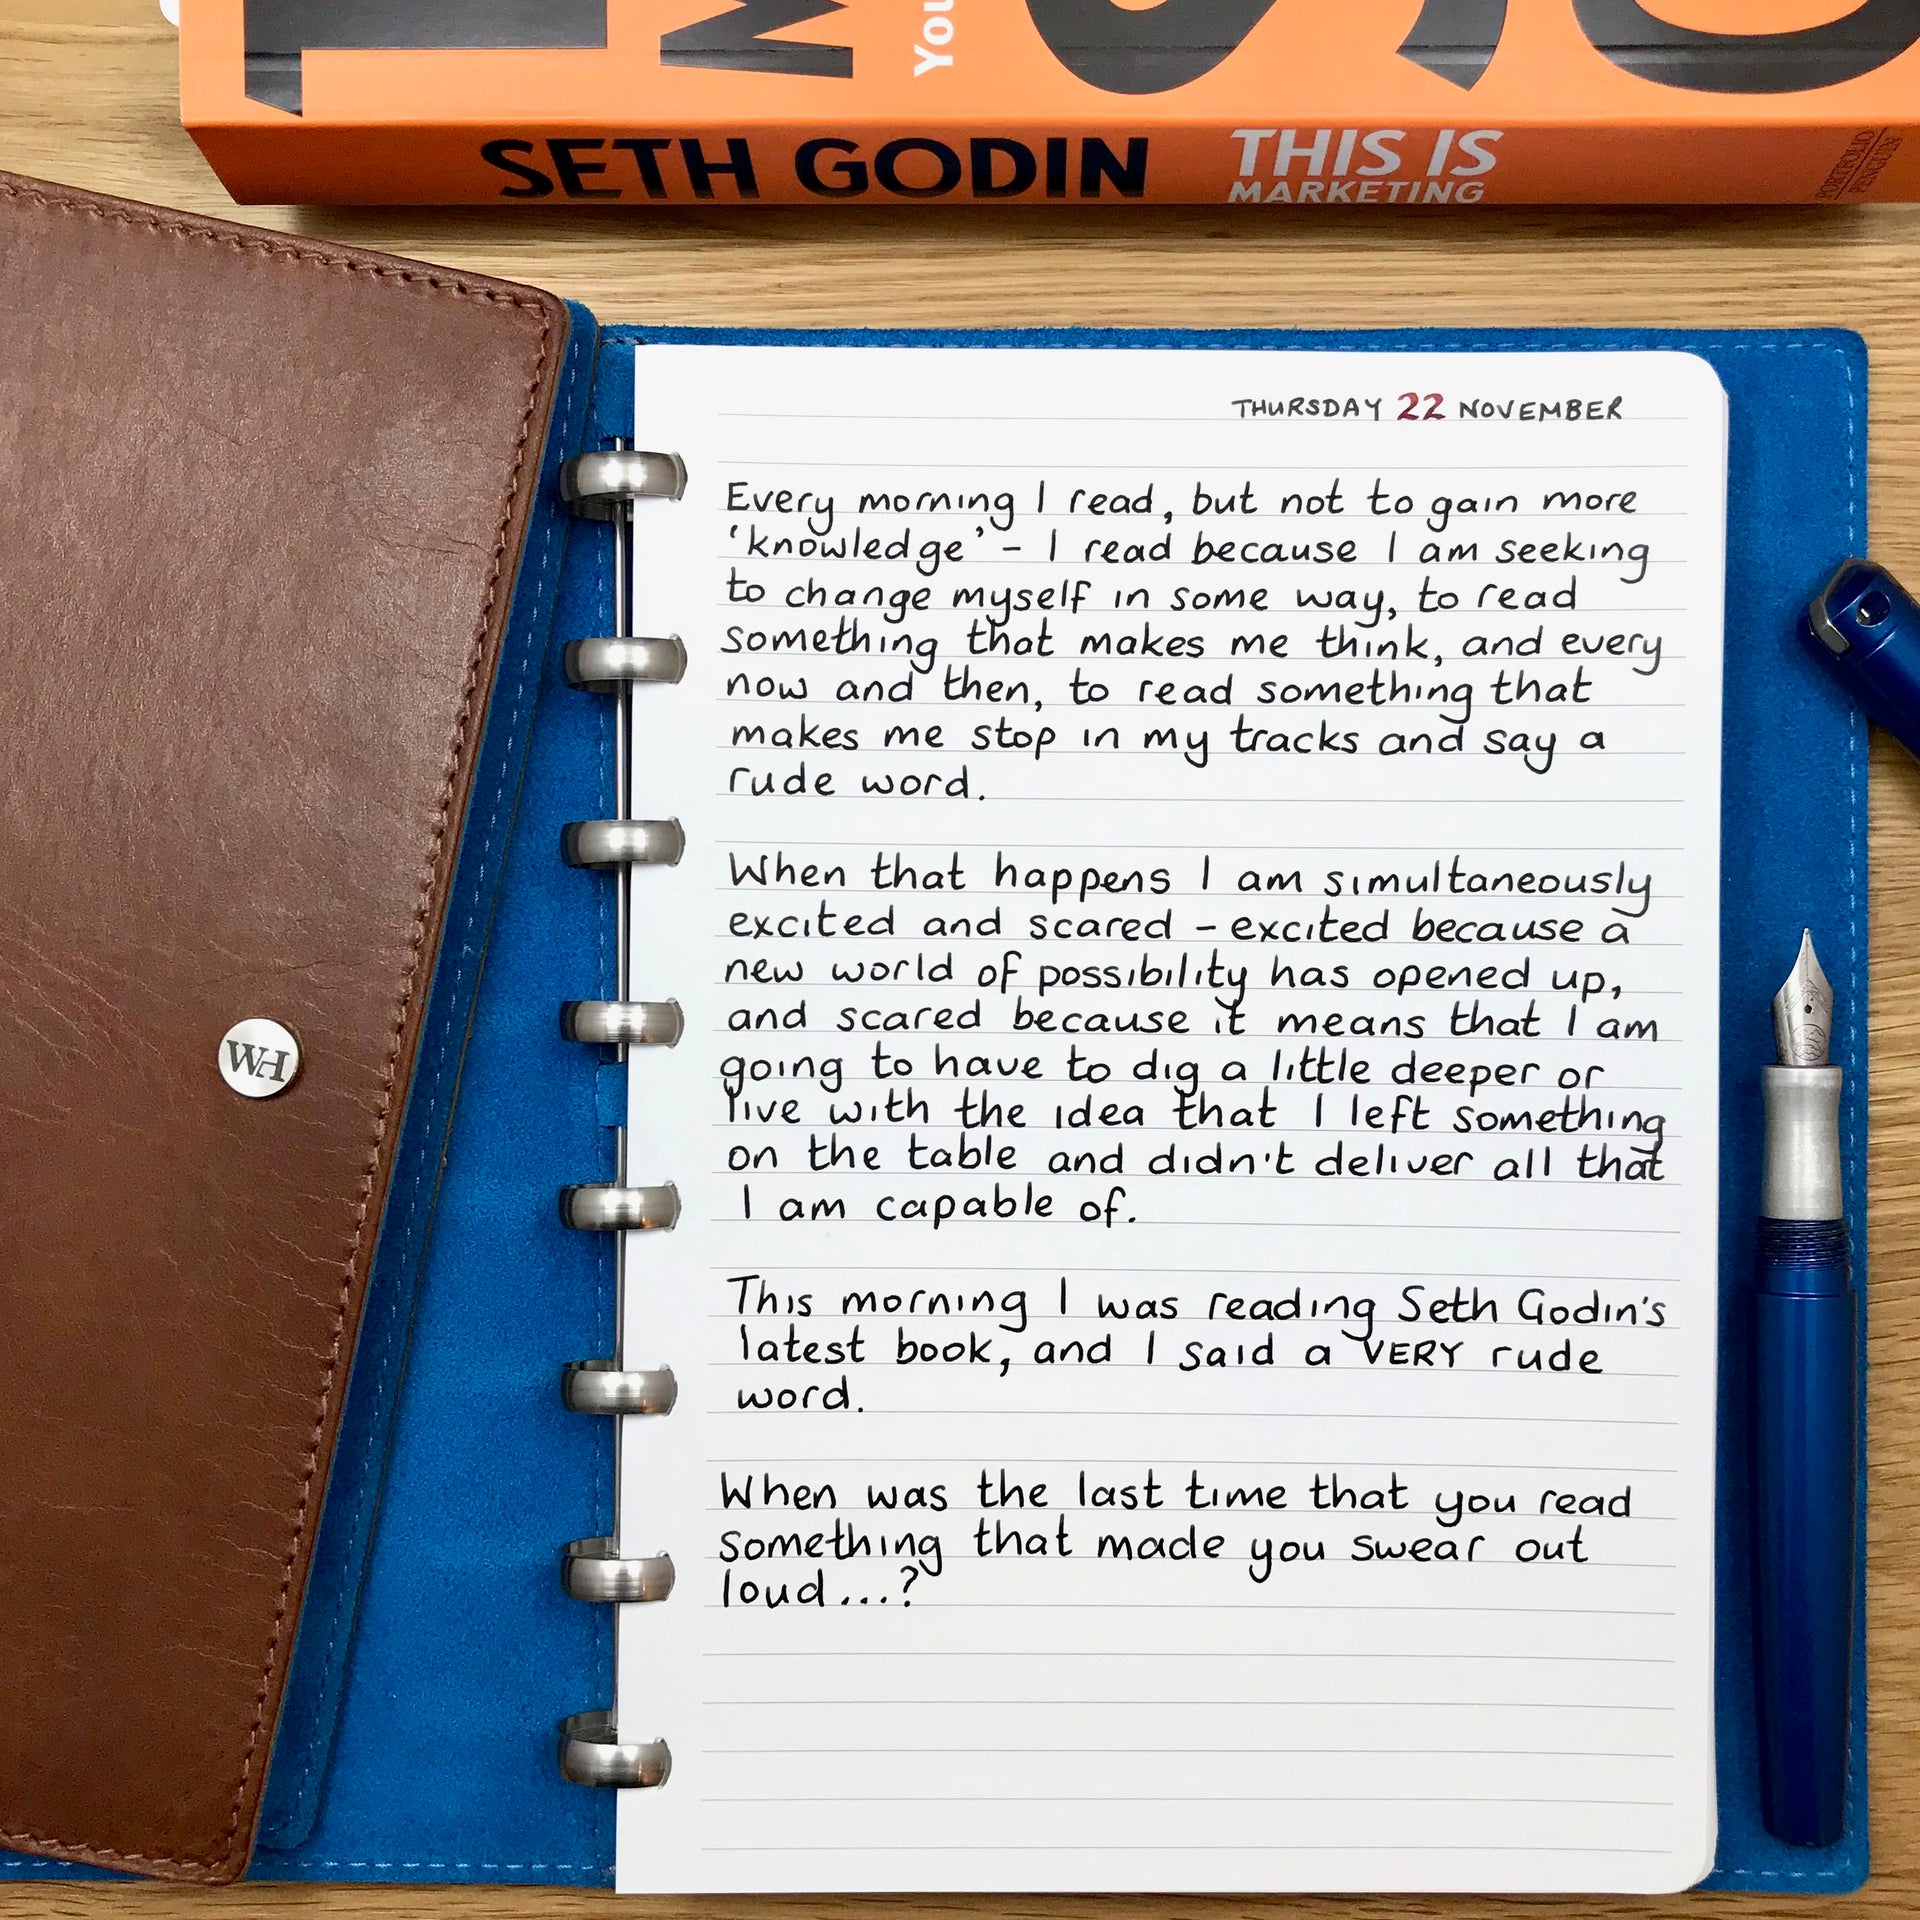 You
SETH GODIN THIS IS
MARKETING
PORTFOLIO
PENGUIN
WH
THURSDAY 22 NOVEMBER
Every morning I read, but not to gain more
'knowledge' - I read because I am seeking
to change myself in some way, to read
something that makes me think, and every
now and then, to read something that
makes me stop in my tracks and say a
rude word.
When that happens I am simultaneously
excited and scared - excited because a
new world of possibility has opened up,
and scared because it means that I am
going to have to dig a little deeper or
live with the idea that I left something
on the table and didn't deliver all that
I am capable of.
This morning I was reading Seth Godin's
latest book, and I said a VERY rude
word.
When was the last time that you read
something that made you swear out
loud...?